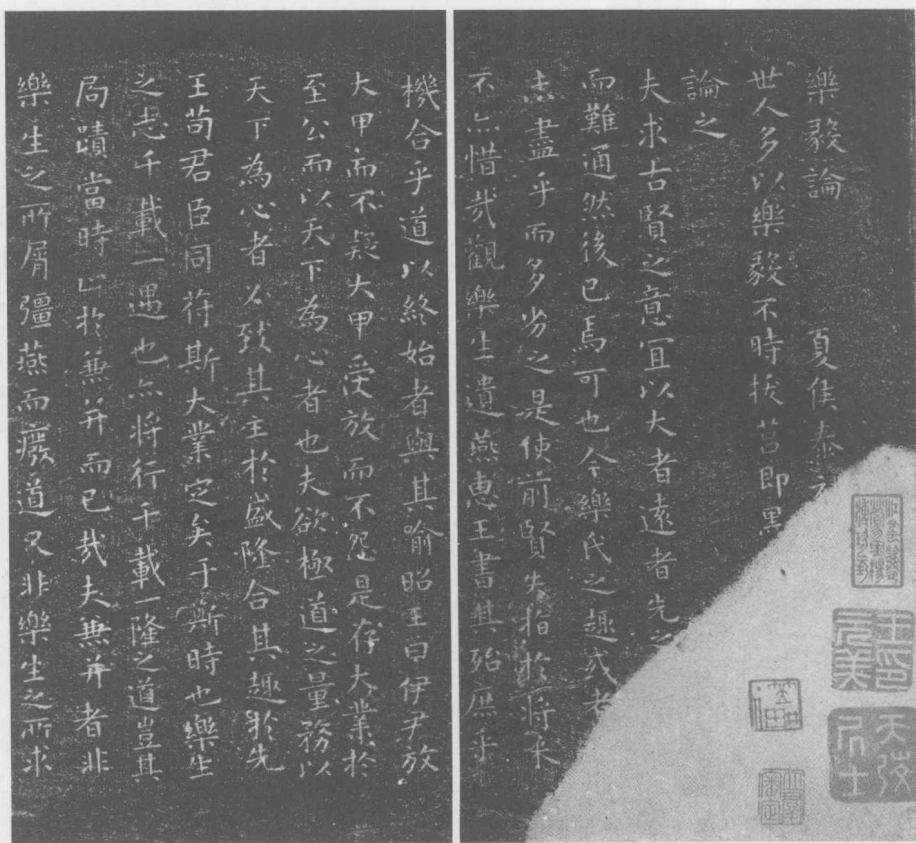 樂毅論 夏侯泰
世人多以樂毅不時拔莒即墨
論之
夫求古賢之意宜以大者遠者先之
而難通然後已焉可也今樂氏之趣或者
未盡乎而多劣之是使前賢失指於將來
不亦惜哉觀樂生遺燕惠王書其殆庶乎
機合乎道以終始者與其喻昭王曰伊尹放
大甲而不疑大甲受放而不怨是存大業於
至公而以天下為心者也夫欲極道之量務以
天下為心者必致其主於盛隆合其趣於先
王苟君臣同苻斯大業定矣于斯時也樂生
之志千載一遇也亦將行千載一隆之道豈其
局蹟當時止於兼并而已哉夫兼并者非
樂生之所屑彊燕而廢道又非樂生之所求
王印元美
天弢居士